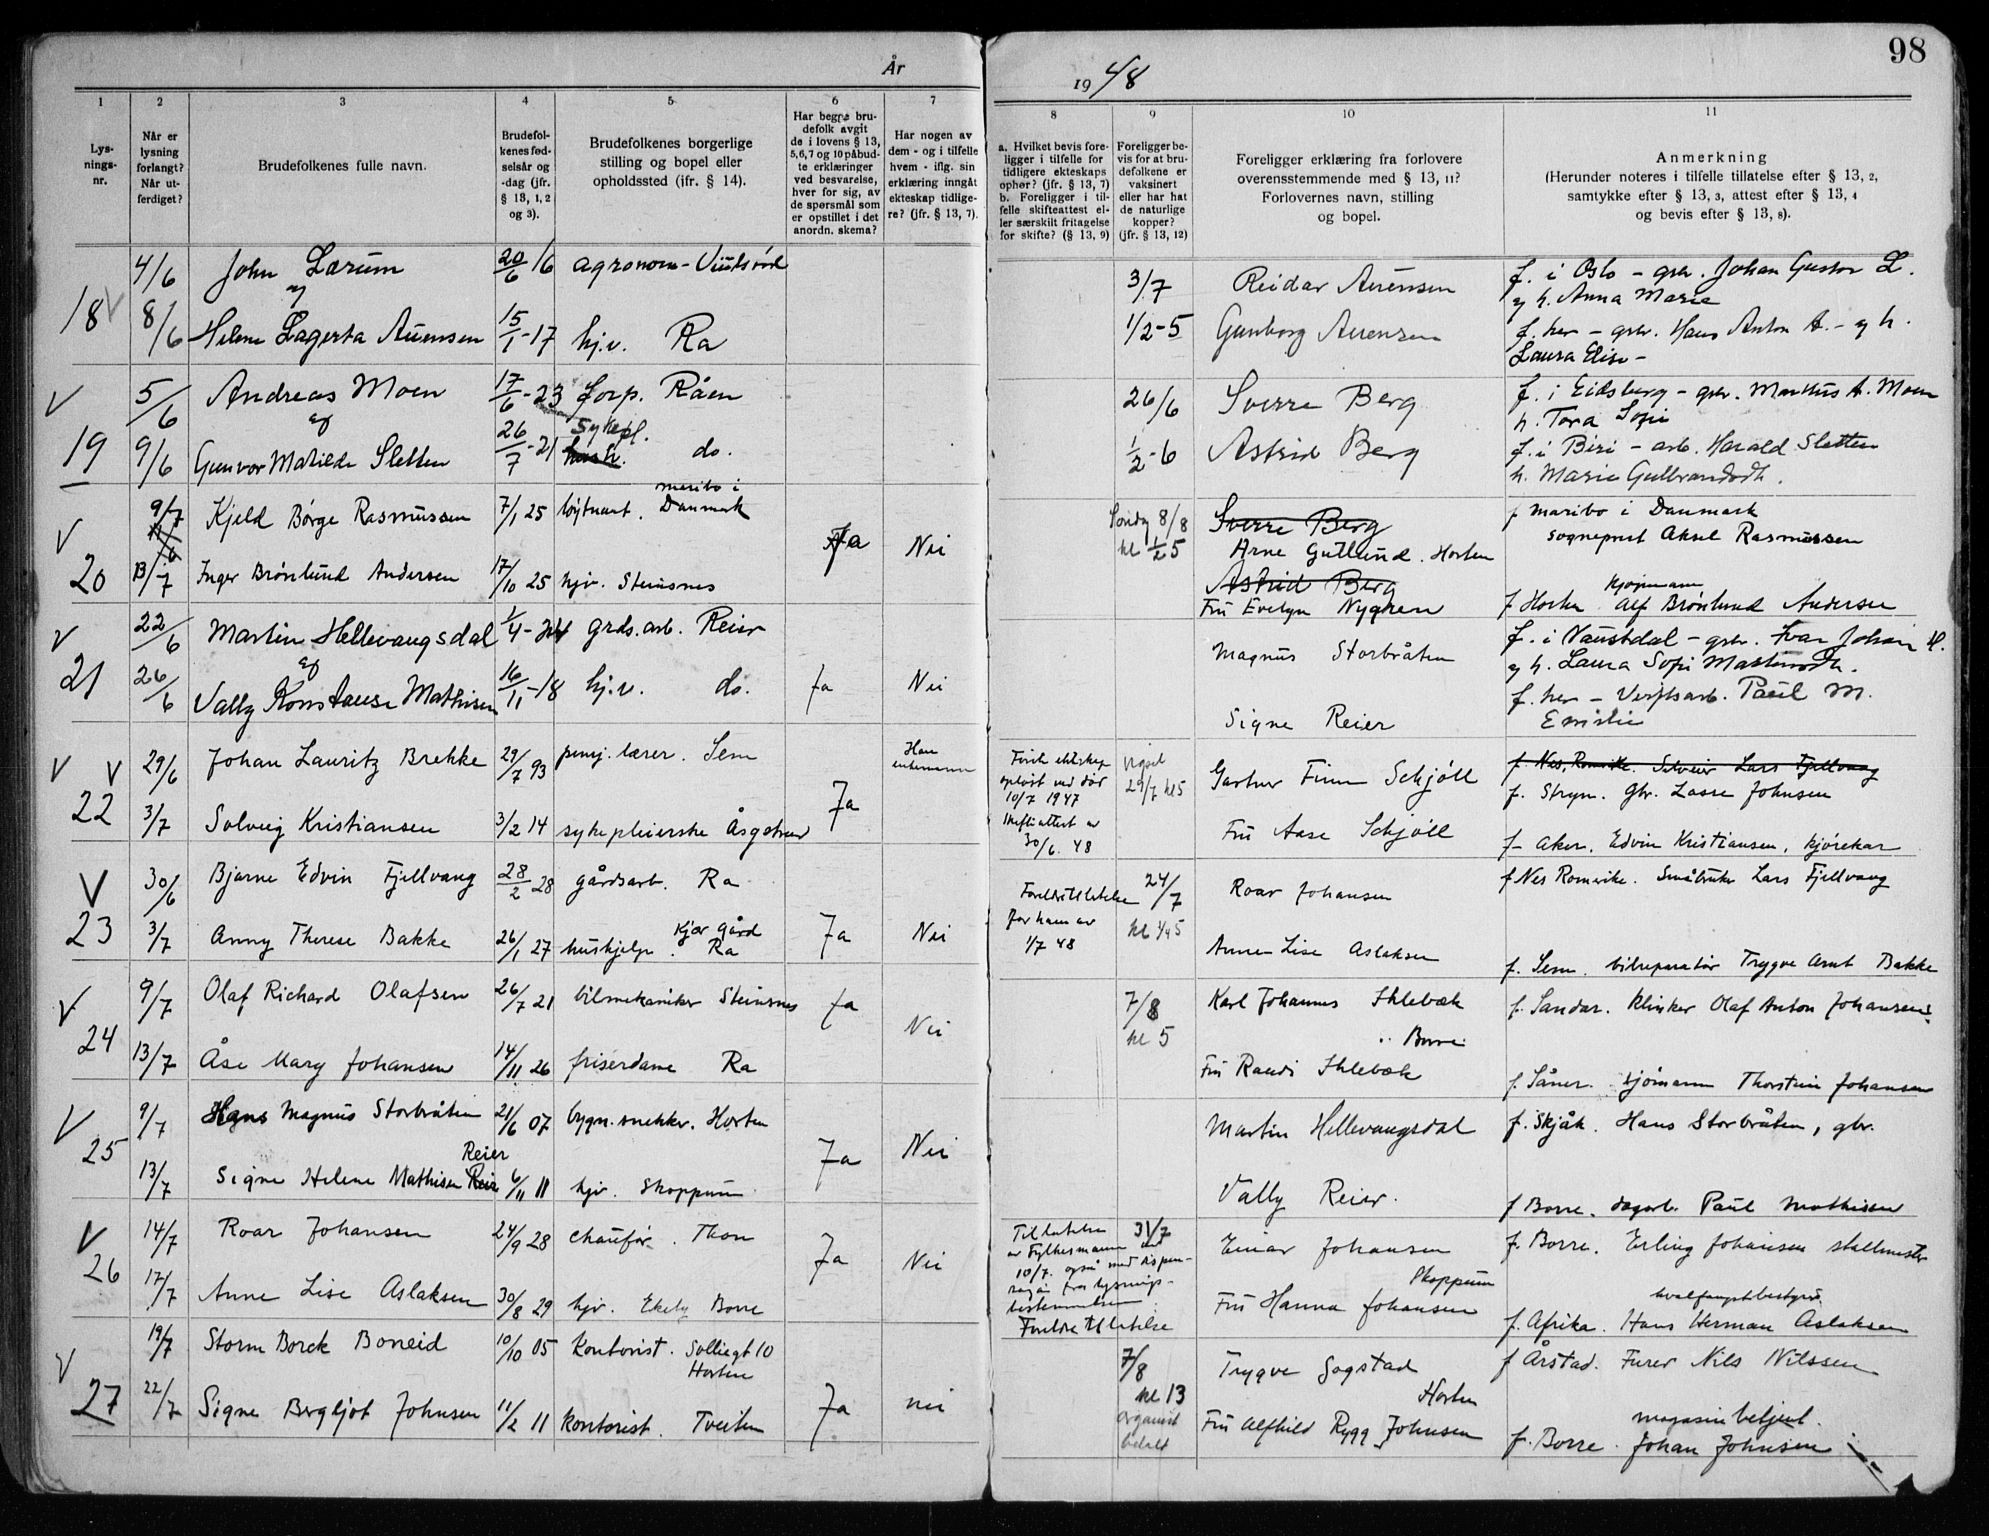 98
År
19 48
1
2
3
4
5
6
7
8
9
10
11
Lys-
nings-
nr.
Når er
lysning
forlangt?
Når ut-
ferdiget?
Brudefolkenes fulle navn.
Brudefol-
kenes fød-
selsår og
-dag (jfr.
§ 13, 1, 2
og 3).
Brudefolkenes borgerlige
stilling og bopel eller
opholdssted (jfr. § 14).
Har begge bru-
defolk avgit
de i lovens § 13,
5, 6, 7 og 10 påbud-
te erklæringer
ved besvarelse,
hver for sig, av
de spørsmål som
er opstillet i det
anordn. skema?
Har nogen av
dem - og i tilfelle
hvem - iflg. sin
erklæring inngåt
ekteskap tidlige-
re? (jfr. § 13, 7).
a. Hvilket bevis fore-
ligger i tilfelle for
tidligere ekteskaps
ophør? (jfr. § 13, 7)
b. Foreligger i til-
felle skifteattest el-
ler særskilt fritagelse
for skifte? (§ 13, 9)
Foreligger be-
vis for at bru-
defolkene er
vaksinert
eller har hat
de naturlige
kopper?
(jfr. § 13, 12)
Foreligger erklæring fra forlovere
overensstemmende med § 13, 11?
Forlovernes navn, stilling
og bopel.
Anmerkning
(Herunder noteres i tilfelle tillatelse efter § 13, 2,
samtykke efter § 13, 3, attest efter § 13, 4
og bevis efter § 13, 8).
18 4/6 John Lærum 20/6 16 agronom - 3/7 Reidar Auensen f. i Oslo - gbr. Johan Gustav L.
og
og h. Anna Marie
8/6 Helene Lagerta Auensen 15/1-17 hj.v. Ra 1/2-5 Gunborg Auensen f. her - gbr. Hans Anton A. - og h.
Laura Elise -
19 5/6 Andreas Moen 17/6-23 Råen 26/6 Sverre Berg f. i Eidsberg - gbr. Markus A. Moen
og
h. Tora Sofie
9/6 Gunvor Matilde Sletten 26/7-21 sykepl. do. 1/2-6 Astrid Berg f. i Biri - arb. Harald Sletten
h. Marie Gulbrandsdh.
20 9/7 Kjeld Børge Rasmussen 7/1 25 løytnant. Maribo i Danmark Ja Nei Søndag 8/8 kl 1/2 5 Sverre Berg f Maribo i Danmark
Arne Gutlund. Horten sogneprest Aksel Rasmussen
Astrid Berg
13/7 Inger Brønlund Andersen 17/10 25 hjv. Steinsnes Fru Evelyn Nygren f Horten kjøpmann Alf Brønlund Andersen
21 22/6 Martin Hellevangsdal 1/4-24 grds.arb. Reier Magnus Storbråten f. i Naustdal - gbr. Ivar Johan H.
og
og h. Laura Sofi
26/6 Vally Konstanse Mathisen 16/11-18 hj.v. do. Ja Nei Signe Reier f. her - Verftsarb. Paul M.
Emilie
22 29/6 Johan Lauritz Brekke 29/7 93 pensj. lærer. Sem Han enkemann Første ekteskap
oppløst ved død
10/7 1947
Skifteattest av
30/6. 48
vigsel
29/7 kl 5
Gartner Finn Schjöll f. Nes, Romerike. Lars Fjellvang
f. Stryn. Gbr. Lasse Johnsen
3/7 Solveig Kristiansen 3/2 14 sykepleierske Åsgstrand Ja Fru Aase Schjöll f- Aker. Edvin Kristiansen, kjørekar
23 30/6 Bjarne Edvin Fjellvang 28/2 28 gårdsarb. Ra Foreldretillatelse
for ham av
1/7 48
24/7
kl 1/4 5
Roar Johansen f Nes Romerike. Småbruker Lars Fjellvang
3/7 Anny Therese Bakke 26/1 27 hushjelp. Kjær Gård Ra Ja Nei Anne Lise Aslaksen f. Sem. bilreparatør Trygve Arnt Bakke
24 9/7 Olaf Richard Olafsen 26/7 21 bilmekaniker Steinsnes Ja Nei 7/8 kl 5 Karl Johannes Ihlebæk f. Sandar. klinker Olaf Anton Johansen
.. Borre
13/7 Åse Mary Johansen 14/11 26 friserdame Ra Fru Randi Ihlebæk f. Såner. sjømann Thorstein Johansen
25 9/7 Hans Magnus Storbråten 21/6 07 bygn.snekker. Horten Martin Hellevangsdal f. Skjåk. Hans Storbråten, gbr.
Reier
13/7 Signe Helene Mathisen Reier 6/11 11 hjv. Skoppum Ja Nei Vally Reier. f Borre. dagarb. Paul Mathisen
26 14/7 Roar Johansen 24/9 28 chaufør. Thon Ja Nei Tillatelse
av Fylkesmann
10/7. også med dispen-
sasjon fra lysnings-
bestemmelsen
Foreldretillatelse
31/7
Einar Johansen f. Borre. Erling Johansen stallmester
Skoppum
17/7 Anne Lise Aslaksen 30/8 29 hjv. Ekely Borre Fru Hanna Johansen hvalfangstbestyrer
f. Afrika. Hans Herman Aslaksen
27 19/7 Storm Borck Boneid 10/10 05 kontorist. Solliegt 10 Horten 7/8 kl 13 Trygve Sogstad f Årstad. Furer Nils Nilssen
Horten
organist
betalt
22/7 Signe Bergljot Johnsen 11/2 11 kontorist. Tveiten Ja nei Fru Alfhild Rygg Johnsen magasinbetjent.
f. Borre. Johan Johnsen